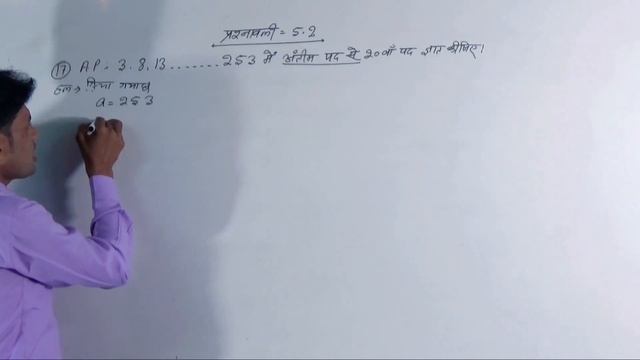 प्रश्नावली = 5.2
(17) A.P. 3, 8, 13 ........ 253 में अंतिम पद से 20वाँ पद ज्ञात कीजिए।
हल → दिया गया है
a = 253